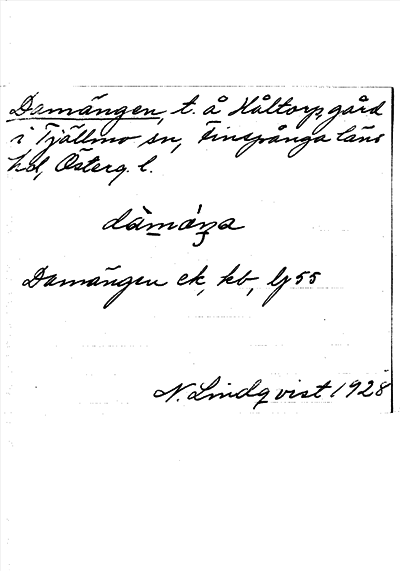 Damängen, t. å Håltorp, gård
i Tjällmo sn, Finspånga läns
hd, Österg. l.
dàmáŋa
Damängen ek, kb, lj 55
N. Lindqvist 1928